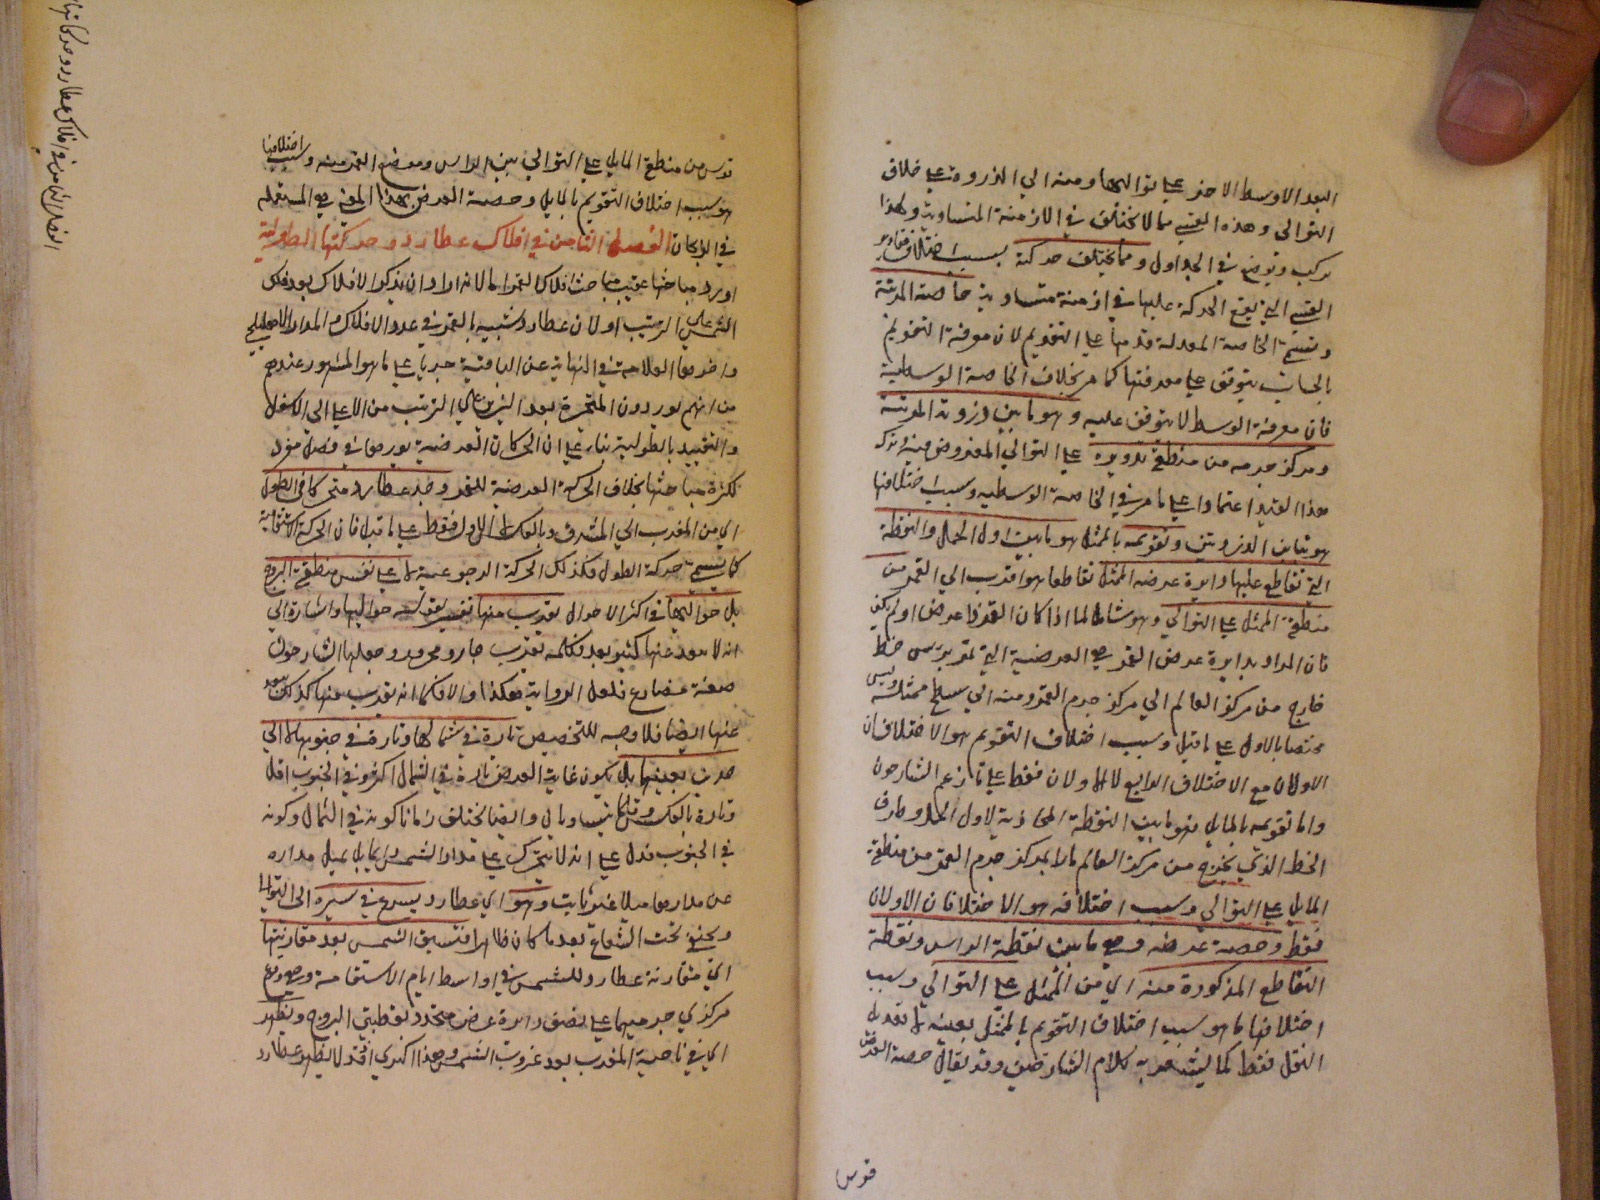 البعد الاوسط الاخر علي تواليها ومنه الي الذروة علي خلاف
التوالي وهذه القسي مما لا تختلف في الازمنة المتساوية ولهذا
يركب ويوضع في الجداول ومما يختلف حركة بسبب اختلاف مقادير
القسي التي يقع الحركة عليها في ازمنة متساوية خاصة المرئية
وتسمي الخاصة المعدلة قدمها علي التقويم لان معرفة التقويم
بالحساب يتوقف علي معرفتها كما مر بخلاف الخاصة الوسطية
فان معرفة الوسط لا يتوقف عليه وهو ما بين ذروته المرئية
ومركز جرمه من منطقة تدويره علي التوالي المفروض منه وترك
هذا القيد اعتمادا علي ما مر في الخاصة الوسطيه وسبب اختلافها
هو تباين الذروتين وتقويمه بالممثل هو ما بين اول الحمل والنقطة
التي تقاطع عليها دايرة عرضه الممثل تقاطعا هو اقرب الي القمر من
منطقة الممثل علي التوالي وهو شامل لما اذا كان القمر ذا عرض اولم يكن
فان المراد بدايرة عرض القمر هي العرضية التي تمر براس خط
خارج من مركز العالم الي مركز جرم القمر ومنه الي سطح ممثله وليس
مختصا بالاول علي ما قيل وسبب اختلاف التقويم هو الاختلافان
الاولان مع الاختلاف الرابع لا الاولان فقط علي ما زعم الشارحون
واما تقويمه بالمايل فهو ما بين النقطة المحاذية لاول الحمل وطرف
الخط الذي يخرج من مركز العالم مارا بمركز جرم القمر من منطقة
المايل علي التوالي وسبب اختلافه هو الاختلافان الاولان
فقط وحصة عرضه وهي ما بين نقطة الراس ونقطة
التقاطع المذكورة منه اي من الممثل علي التوالي وسبب
اختلافها ما هو سبب اختلاف التقويم بالممثل بعينه لا تعديل
النقل فقط كما يشعر به كلام الشارحين وقد يقال حصة العرض
قوس
قوس من منطقة المايل علي التوالي بين الراس وموضع القمر منه وسبب اختلافها
هو سبب اختلاف التقويم بالمايل وحصة العرض بهذا المعني هي المستعمله
في الزيجات الفصل الثامن في افلاك عطارد وحركتها الطولية
اورد مباحثها عقيب مباحث افلاك القمر اما لانه اراد ان يذكر الافلاك بعد فلك
الشمس علي الترتيب او لان عطارد شبيه بالقمر في عدد الافلاك والمدار الاهليلجي
واخرها العلامة في النهاية عن الباقية جريا علي ما هو المشهور عندهم
من انهم يوردون المتحيرة بعد النيرين علي الترتيب من الاعلي الي الاسفل
والتقييد بالطولية بناء علي ان الحركات العرضية يوردها في فصل مفرد
لكثرة مباحثها بخلاف الحركة العرضية للقمر وجد عطارد متحركا في الطول
اي من المغرب الي المشرق وبالعكس لا الاول فقط علي ما قيل فان الحركة الاستقامية
كما يسمي حركة الطول فكذلك الحركة الرجوعية لا علي نفس منطقة البروج
بل حواليها في اكثر الاحوال بقرب منها تفسير لقوله حواليها واشارة الي
انه لا يبعد عنها كثير بعد فكلمة بقرب جار ومجرور وجعلها الشارحون
صفة مضارع فلعل الرواية هكذا والا فكما انه يقرب منها كذلك يبعد
عنها ايضا فلا وجه للتخصيص تارة في شمالها وتارة في جنوبها لا الي
حدين بعينهما بل يكون غاية العرض تارة في الشمال اكثر وفي الجنوب اقل
وتارة بالعكس وقلما يتساويان وايضا يختلف زمانا كونه في الشمال وكونه
في الجنوب فدل علي انه لا يتحرك علي مدار الشمس بل يميل مداره
عن مدارها ميلا غير ثابت وهو اي عطارد يسرع في سيره الي التوالي
ويختفي تحت الشعاع بعد ما كان ظاهرا فتسبق الشمس بعد مقارنتها
اي مقارنة عطارد للشمس في اواسط ايام الاستقامة وهي وقوع
مركزي جرميهما علي نصف دايرة عرض متحدد بقطبي البروج ويظهر
اي في ناحية المغرب بعد غروب الشمس وهذا اكثري اذ قد لا يظهر عطارد
الفصل الثامن في افلاك عطارد وحركاتها